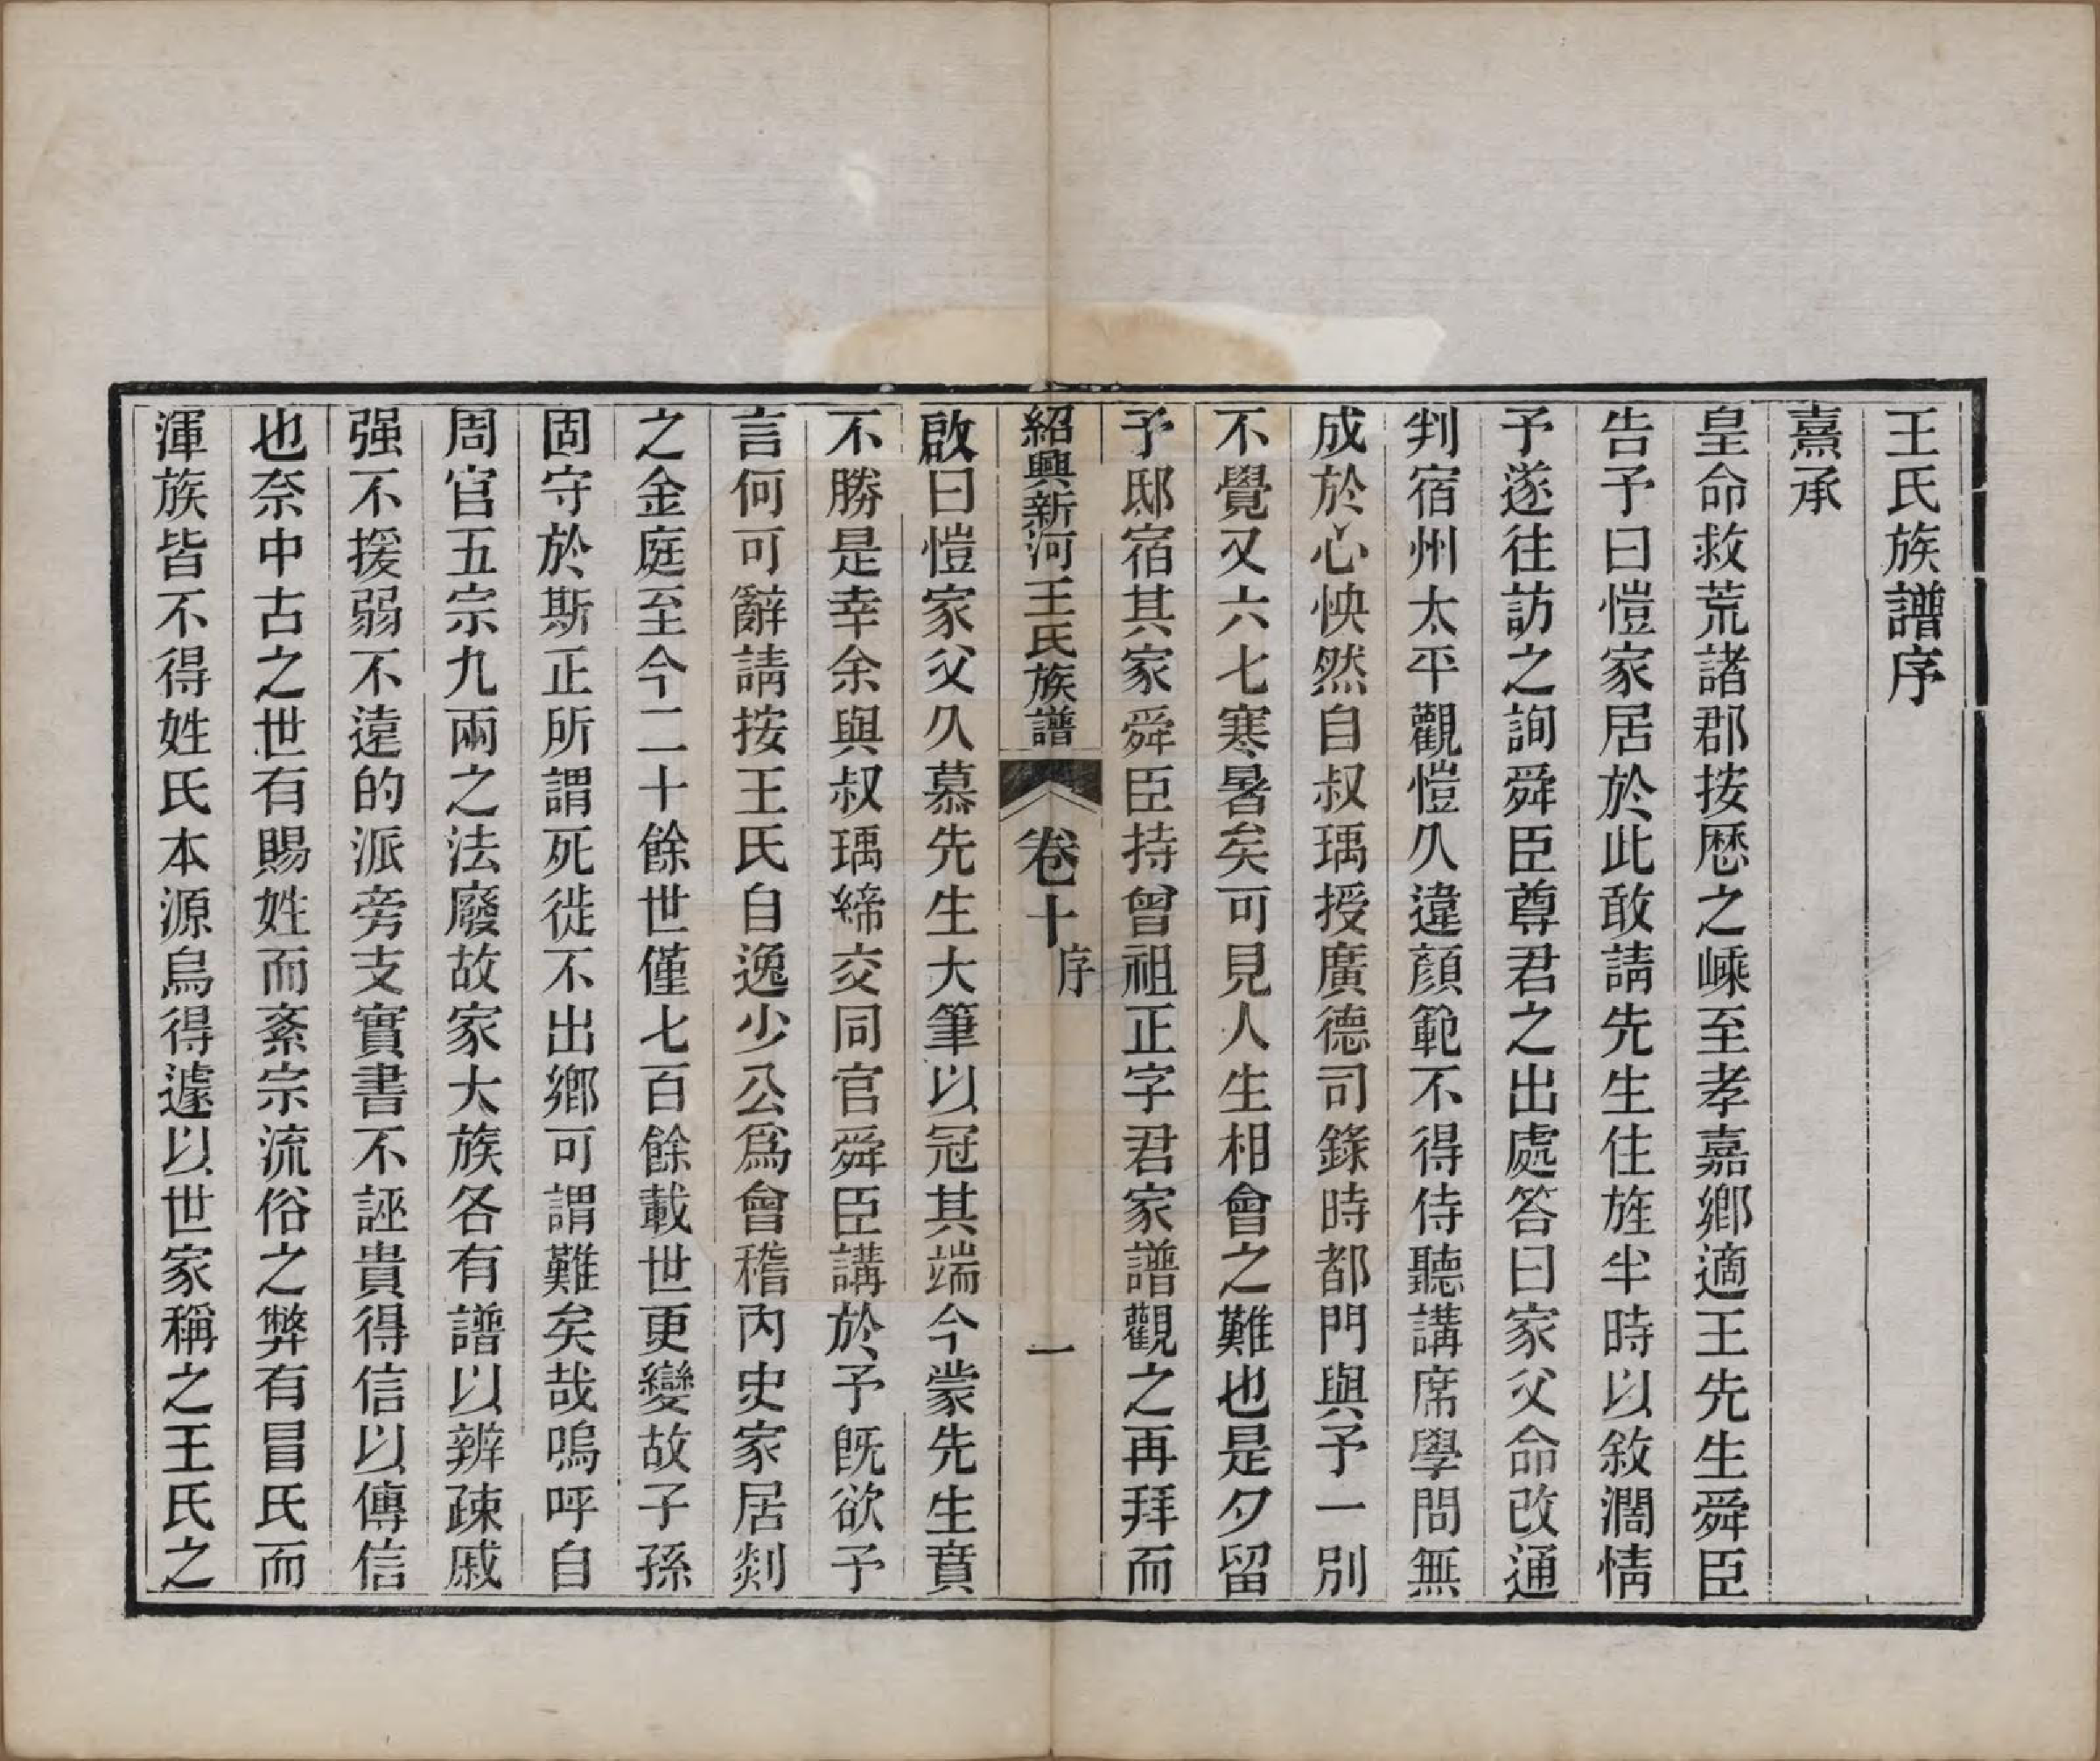 王氏族譜序
熹承
皇命救荒諸郡按歷之嵊至孝嘉鄉適王先生舜臣
告予曰愷家居於此敢請先生住旌半時以敘濶情
予遂往訪之詢舜臣尊君之出處答曰家父命改通
判宿州太平觀愷久違顏範不得侍聽講席學問無
成於心怏然自叔瑀授廣德司錄時都門與予一別
不覺又六七寒暑矣可見人生相會之難也是夕留
予邸宿其家舜臣持曾祖正字君家譜觀之再拜而
紹興新河王氏族譜 卷十 序 一
啟曰愷家父久慕先生大筆以冠其端今蒙先生賁
不勝是幸余與叔瑀締交同官舜臣講於予旣欲予
言何可辭請按王氏自逸少公爲會稽內史家居剡
之金庭至今二十餘世僅七百餘載世更變故子孫
固守於斯正所謂死徙不出鄉可謂難矣哉嗚呼自
周官五宗九兩之法廢故家大族各有譜以辨疎戚
强不援弱不遠的派旁支實書不誣貴得信以傳信
也奈中古之世有賜姓而紊宗流俗之弊有冒氏而
渾族皆不得姓氏本源烏得遽以世家稱之王氏之